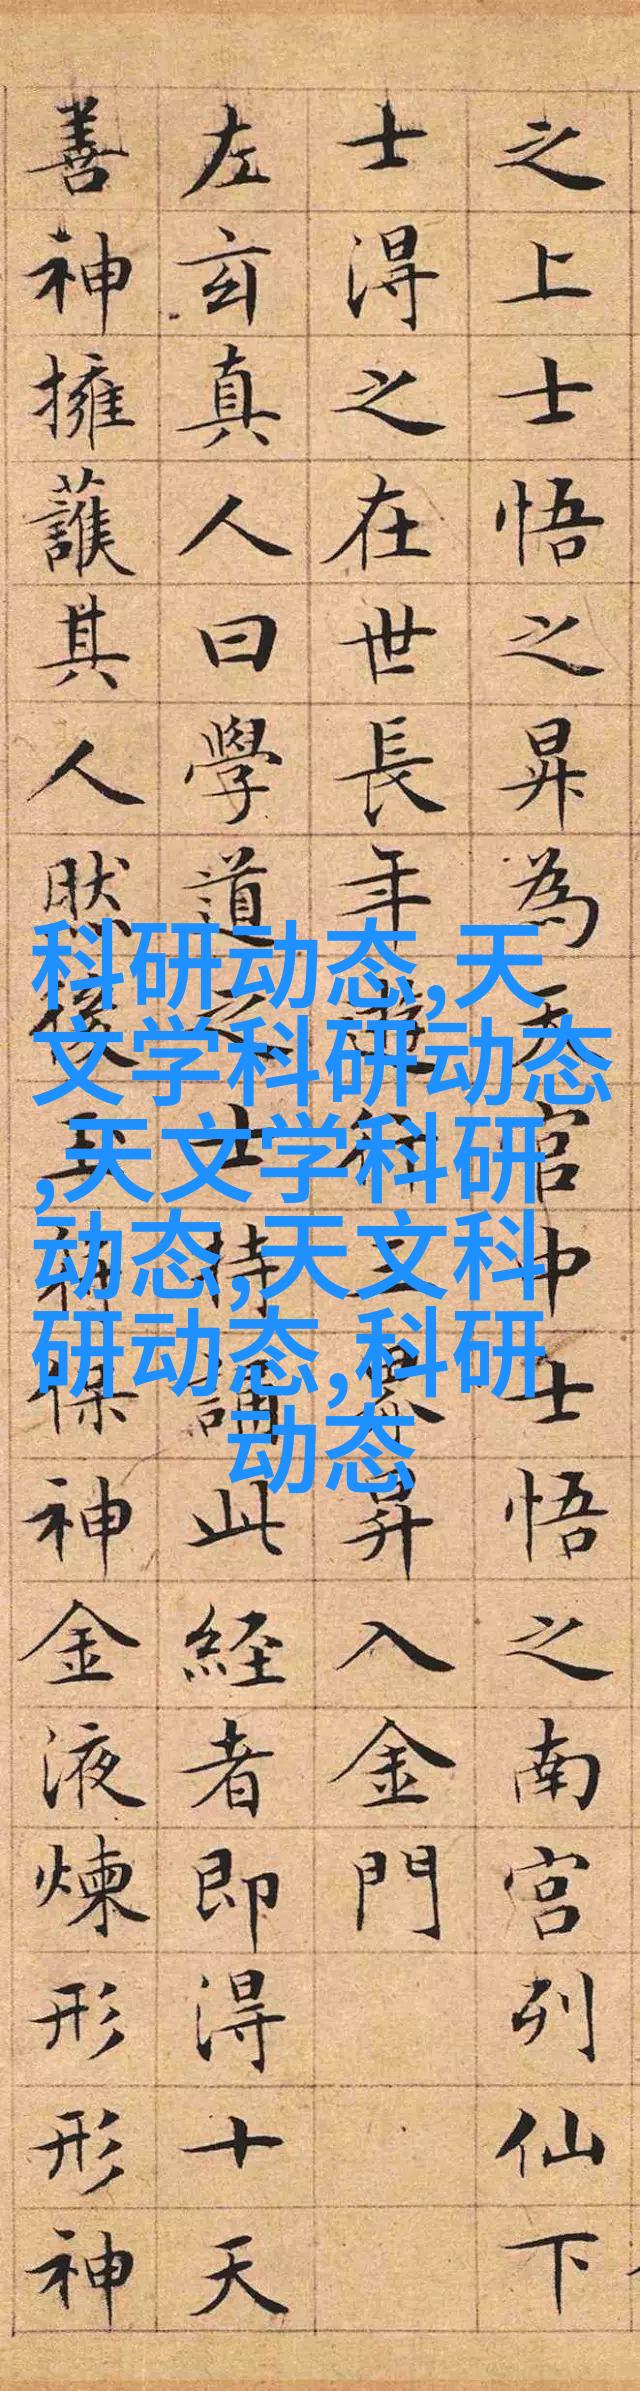 之上士悟之昇為天官中士悟之南宮列仙下
士得之在世長年遊行三界昇入金門
左玄真人曰學道之士持誦此經者即得十天
善神擁護其人然後玉符保神金液煉形形神
科研动态,天
文学科研动态
,天文学科研
动态,天文科
研动态,科研
动态